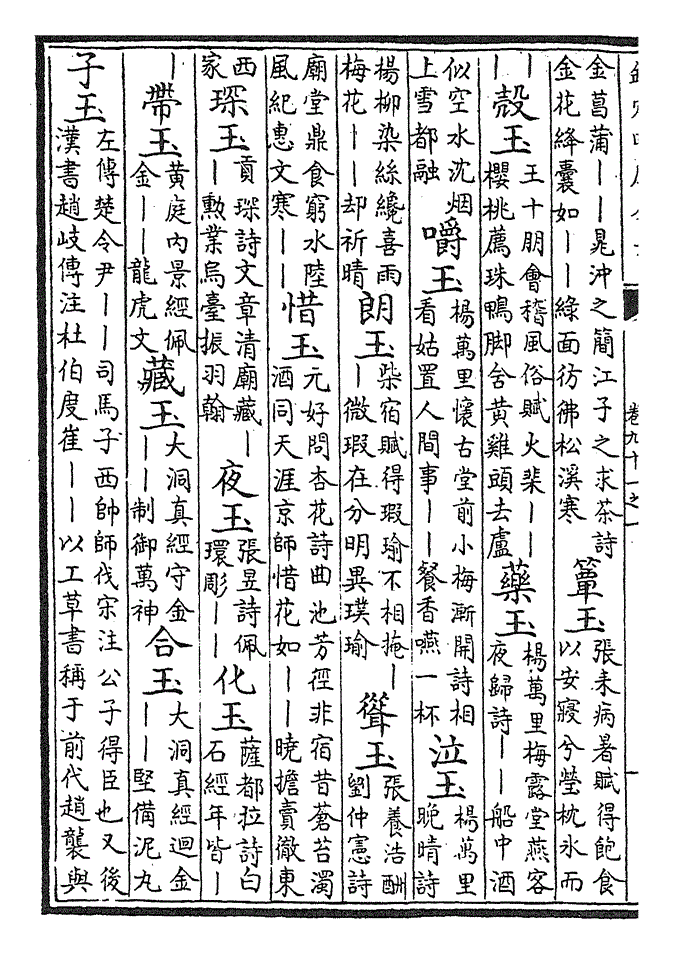 卷九十一之一
一
金菖蒲――晁沖之簡江子之求茶詩
金花絳囊如――綠面彷彿松溪寒
簟玉
張耒病暑賦得飽食
以安寢兮瑩枕氷而
――
殼玉
王十朋會稽風俗賦火棐――
櫻桃薦珠鴨脚舍黄雞頭去盧
藥玉
楊萬里梅露堂燕客
夜歸詩――船中酒
似空水沈烟
上雪都融
嚼玉
楊萬里懐古堂前小梅漸開詩相
看姑置人間事――餐香嚥一杯
泣玉
楊萬里
晚晴詩
楊柳染絲纔喜雨
梅花――却祈晴
朗玉
柴宿賦得瑕瑜不相掩―
―微瑕在分明異璞瑜
聳玉
張養浩酬
劉仲憲詩
廟堂鼎食窮水陸
風紀惠文寒――
惜玉
元好問杏花詩曲池芳徑非宿昔蒼苔濁
酒同天涯京師惜花如――曉擔賣徹東
西
家
琛玉
貢琛詩文章清廟藏―
―勲業烏臺振羽翰
夜玉
張昱詩佩
環彫――
化玉
薩都拉詩白
石經年皆―
―
帶玉
黄庭内景經佩
金――龍虎文
藏玉
大洞真經守金
――制御萬神
合玉
大洞真經迴金
――堅備泥丸
子玉
左傳楚令尹――司馬子西帥師伐宋注公子得臣也又後
漢書趙岐傳注杜伯度崔――以工草書稱于前代趙襲與